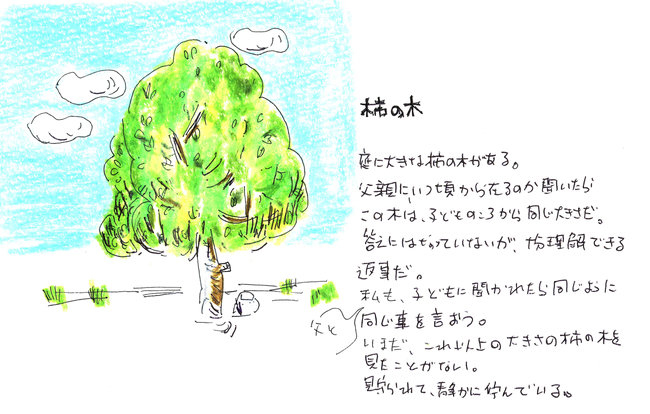 柿の木
庭に大きな柿の木がある。
父親にいつ頃から在るのか聞いたら
この木は、子どものころから同じ大きさだ。
答えにはなっていないが、物理解できる
返事だ。
私も、子どもに聞かれたら同じように
父と
同じ事を言おう。
いまだ、これ以上の大きさの柿の木を
見たことがない。
黙られて、静かに佇んでいる。